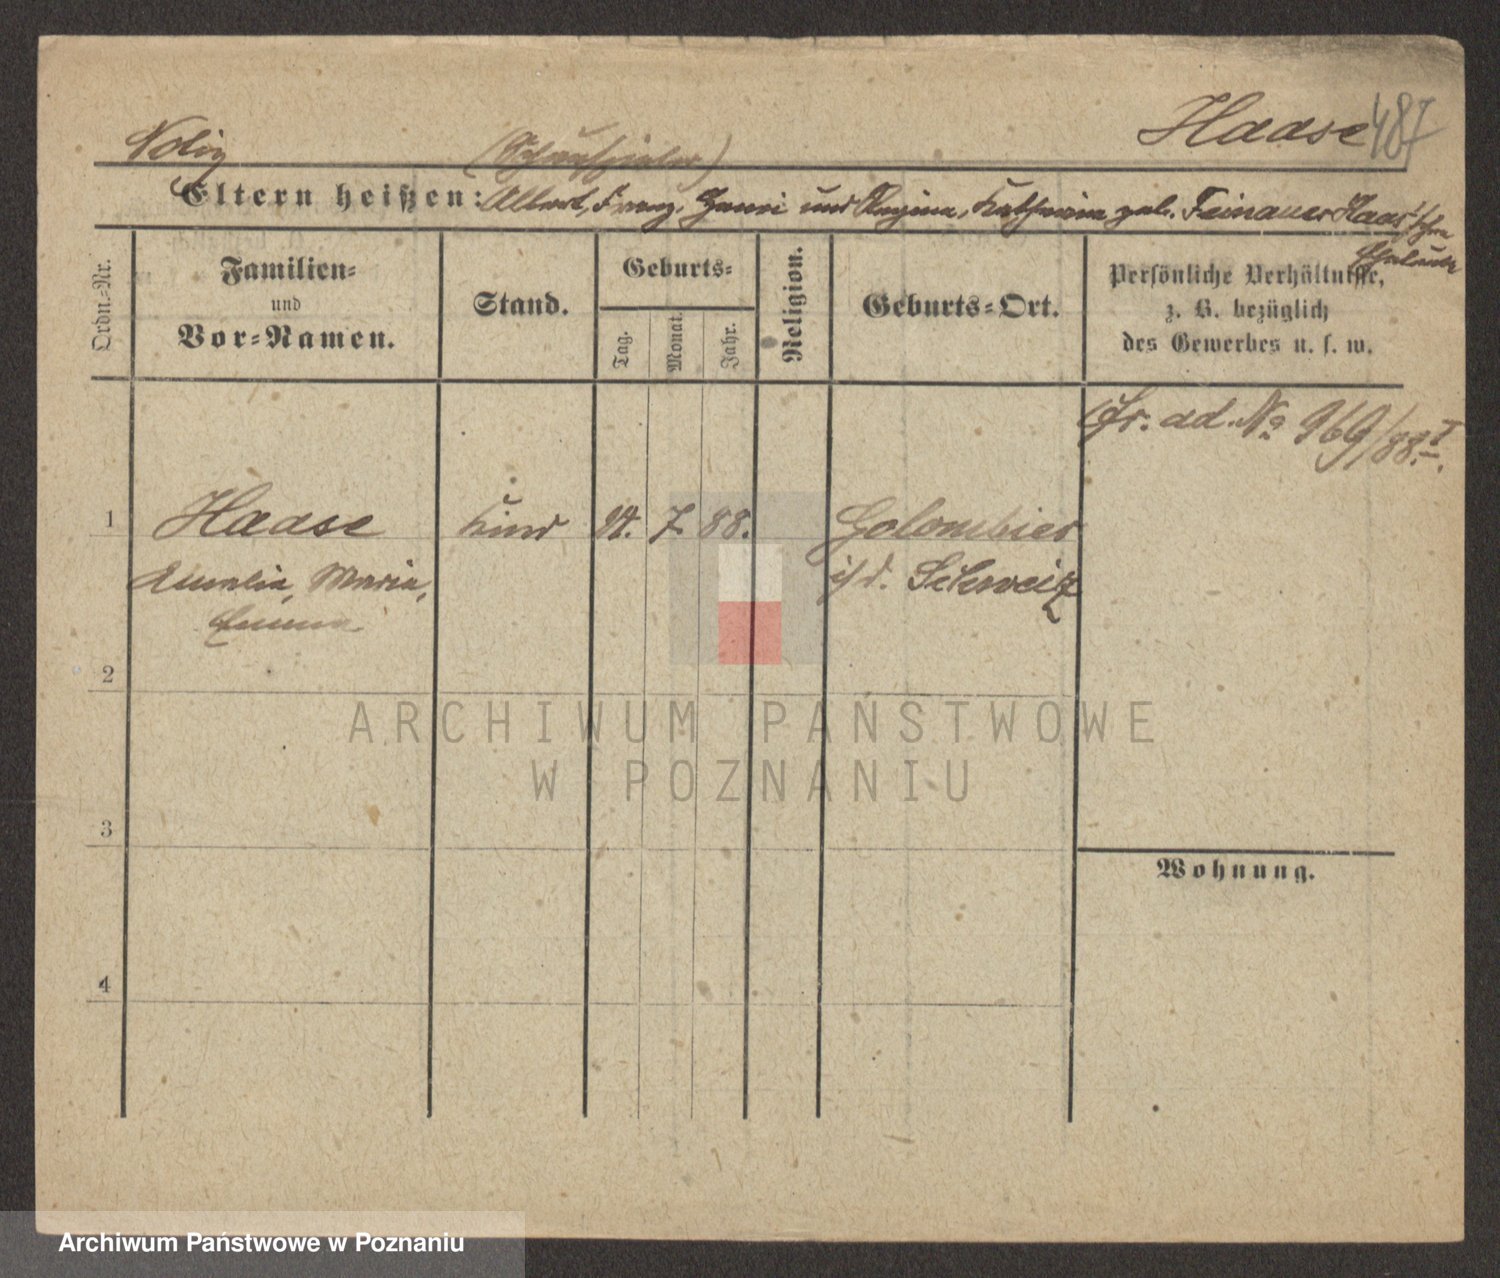 Haase 487
Notiz (Schauspieler)
Eltern heißen: Albert, Franz, Henri und Regina, Katharina geb. Feinauer Haase'schen
Eheleute
Ordn.-Nr.
Familien-
und
Vor-Namen.
Stand.
Geburts-
Tag.
Monat.
Jahr.
Religion.
Geburts-Ort.
Persönliche Verhältnisse,
z. B. bezüglich
des Gewerbes u. s. w.
cfr. ad. No 969/88.I.
1 Haase Kind 14. 7. 88. Colombier
Amalia, Maria, i/d. Schweiz
Emma
2
3
4
Wohnung.
ARCHIWUM PAŃSTWOWE
W POZNANIU
Archiwum Państwowe w Poznaniu